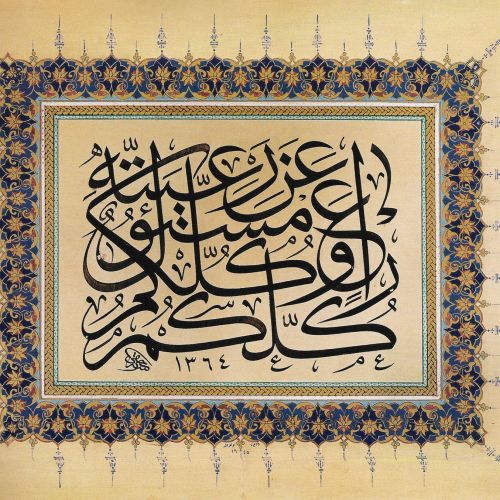 كلّكم راع وكلّكم مسئول عن رعيّته
١٣٦٤